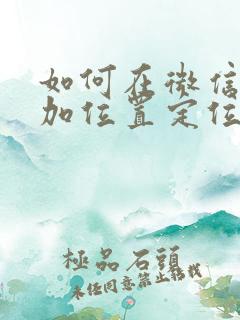 如何在微信
加位置定位
極品石頭
未任同意禁止转载